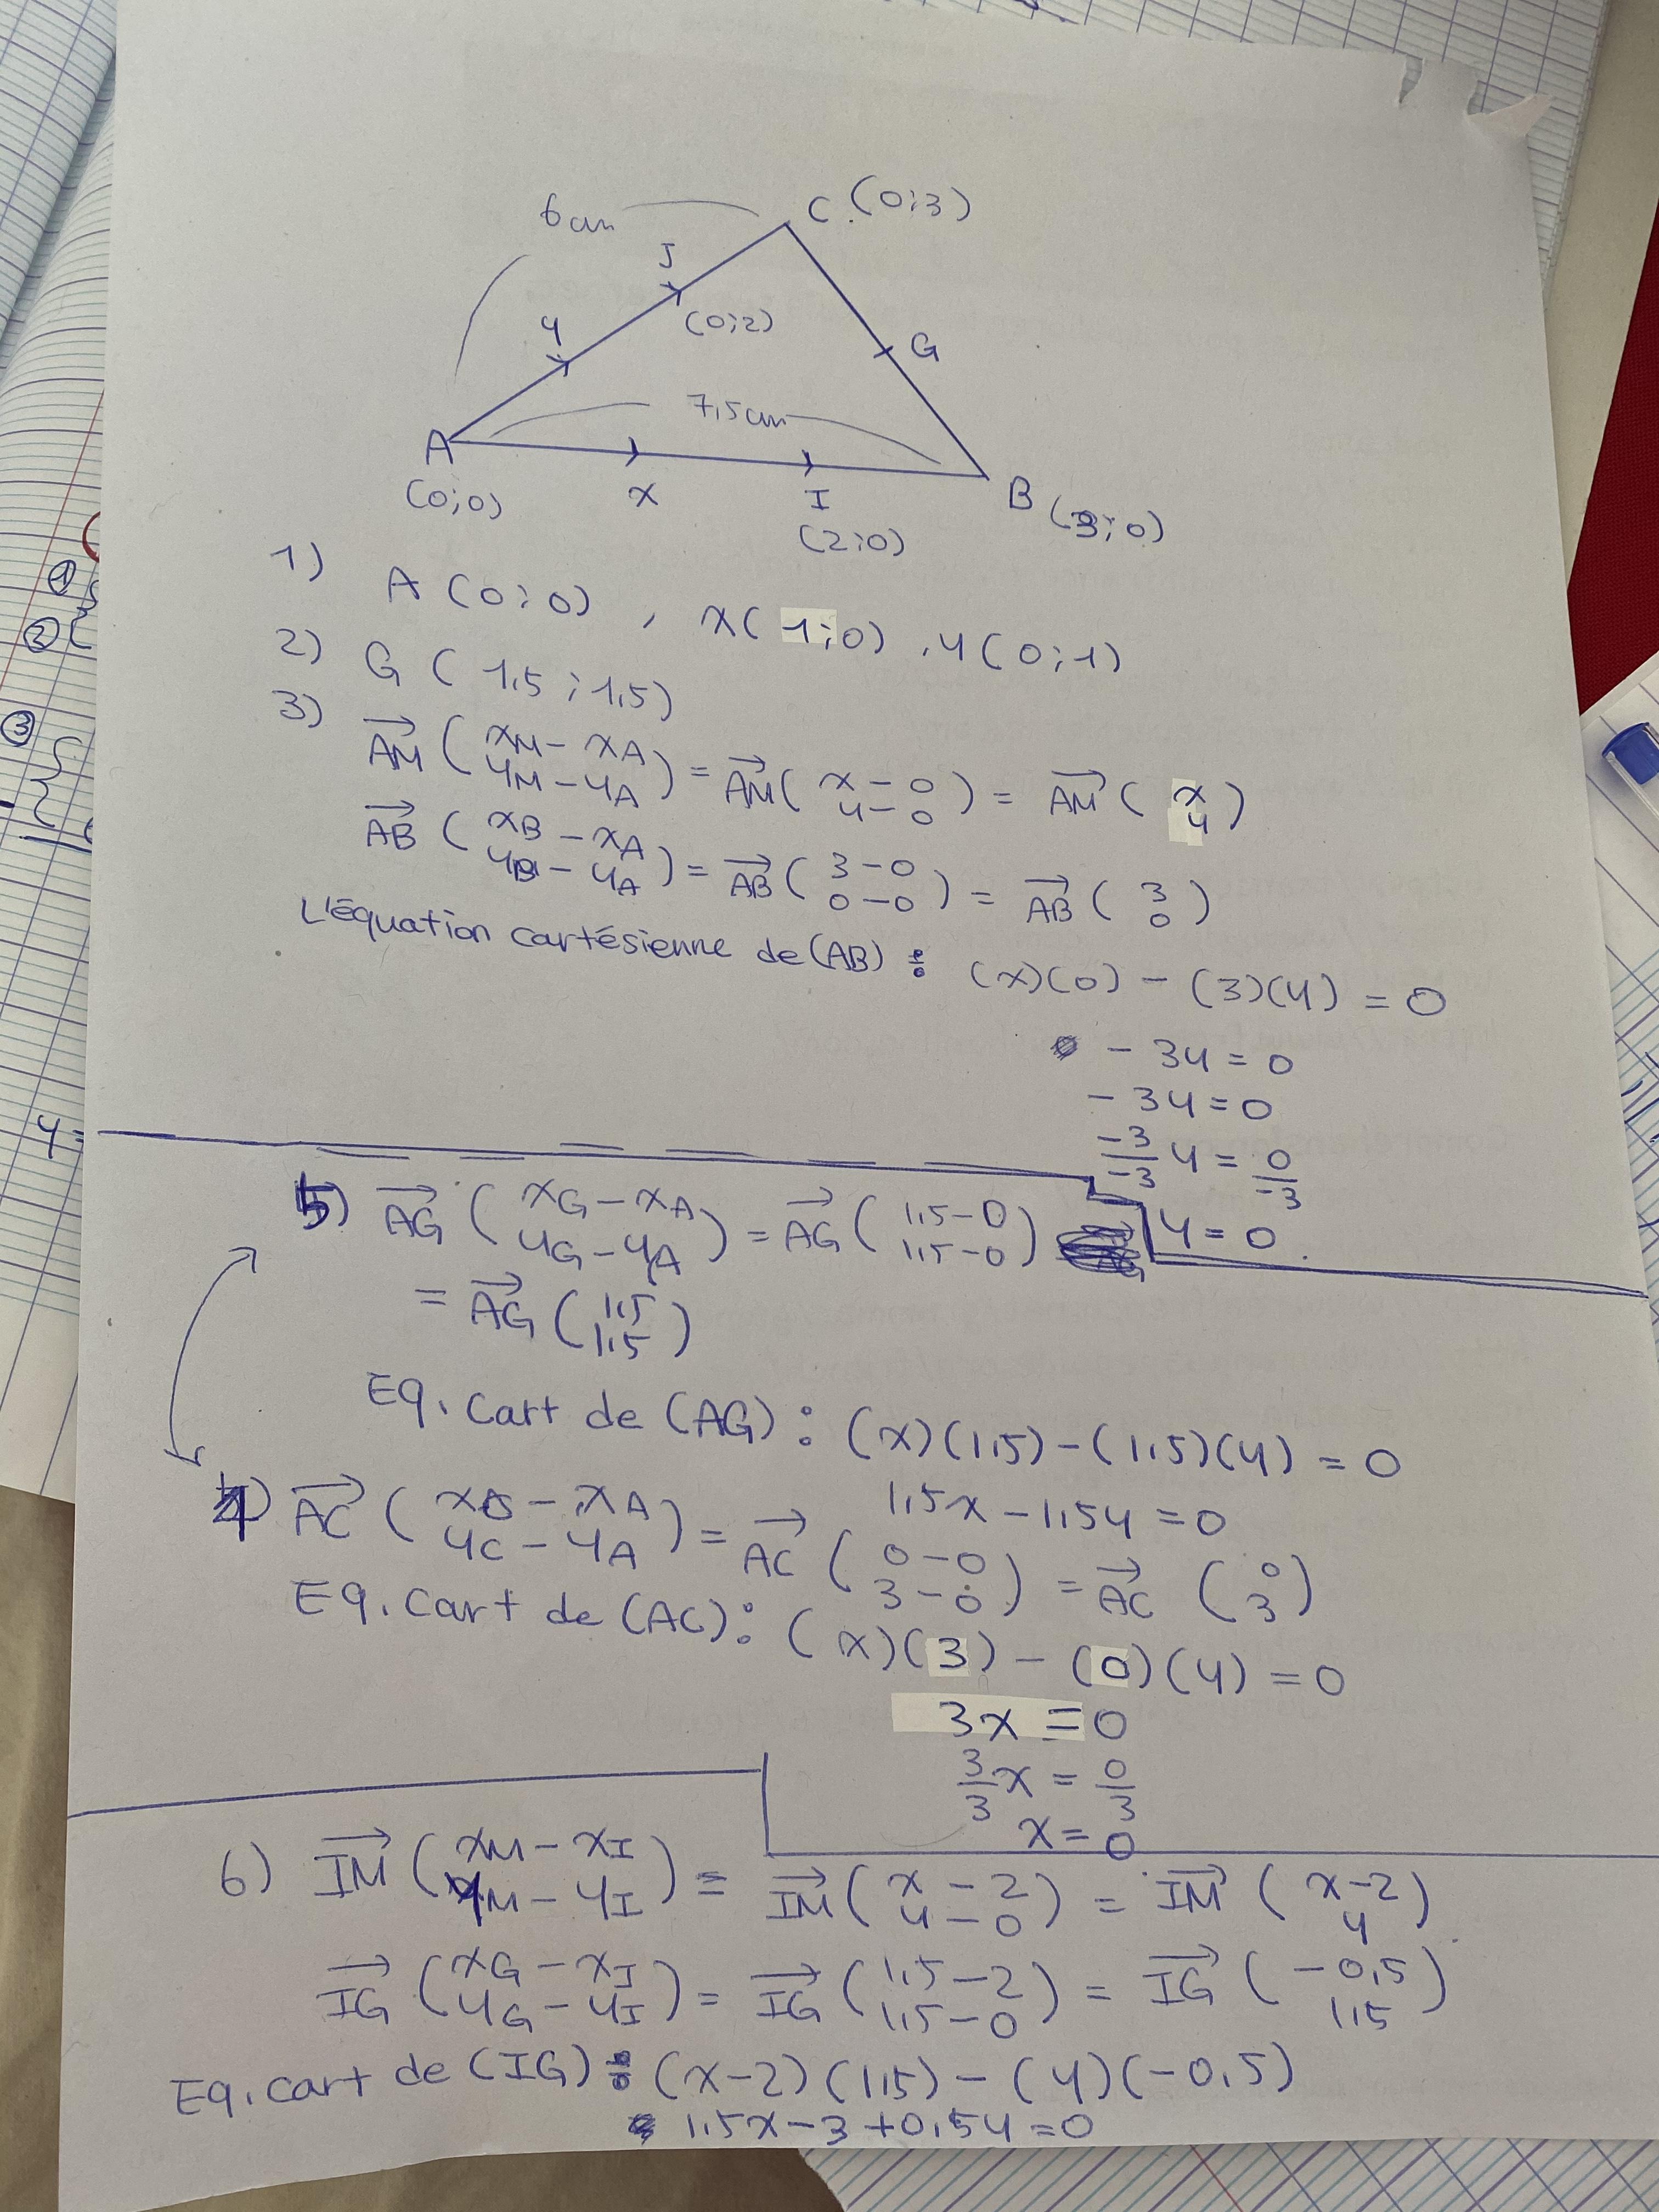 6cm
C (0;3)
J
(0;2)
y
G
7,5cm
A
(0;0)
x
I
(2;0)
B (3;0)
1) A (0;0) , x(1;0) , y(0;1)
2) G (1,5 ; 1,5)
3) AM→ (xM - xA / yM - yA) = AM→ (x - 0 / y - 0) = AM→ (x / y)
AB→ (xB - xA / yB - yA) = AB→ (3 - 0 / 0 - 0) = AB→ (3 / 0)
L'équation cartésienne de (AB) : (x)(0) - (3)(y) = 0
- 3y = 0
- 3y = 0
-3/-3 y = 0/-3
y = 0
5) AG→ (xG - xA / yG - yA) = AG→ (1,5 - 0 / 1,5 - 0)
= AG→ (1,5 / 1,5)
Eq. Cart de (AG) : (x)(1,5) - (1,5)(y) = 0
1,5x - 1,5y = 0
4) AC→ (xC - xA / yC - yA) = AC→ (0 - 0 / 3 - 0) = AC→ (0 / 3)
Eq. Cart de (AC) : (x)(3) - (0)(y) = 0
3x = 0
3/3 x = 0/3
x = 0
6) IM→ (xM - xI / yM - yI) = IM→ (x - 2 / y - 0) = IM→ (x-2 / y)
IG→ (xG - xI / yG - yI) = IG→ (1,5 - 2 / 1,5 - 0) = IG→ (-0,5 / 1,5)
Eq. cart de (IG) : (x-2)(1,5) - (y)(-0,5)
1,5x - 3 + 0,5y = 0
①
②
③
y=